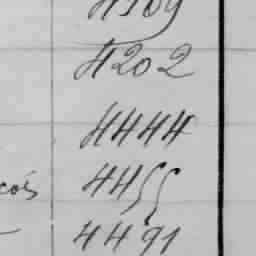 4202
4444
cois 4455
4491